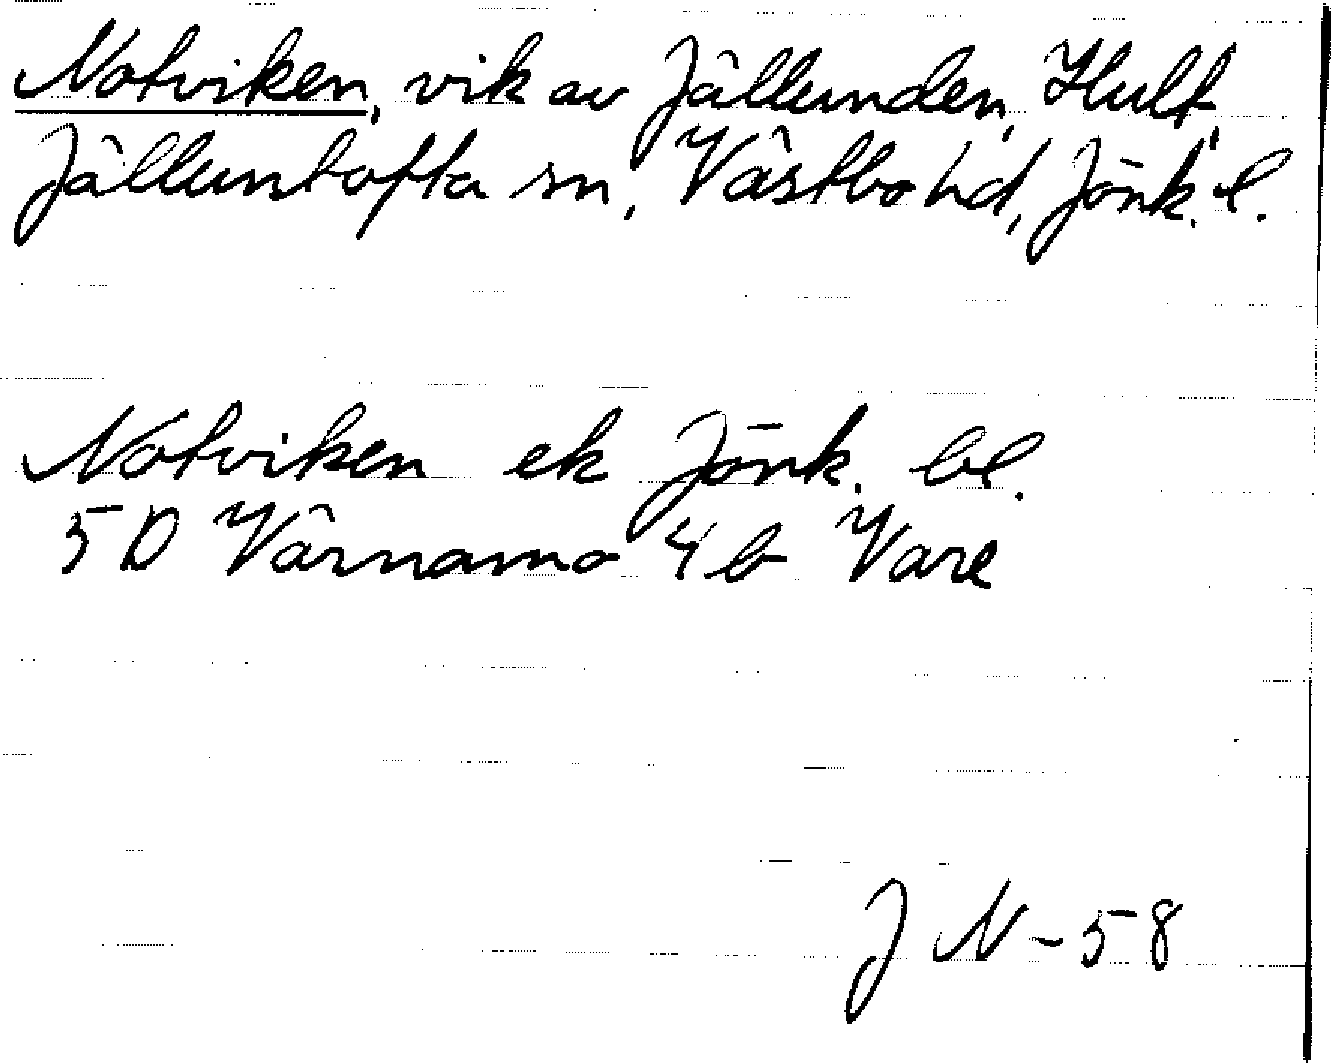 Notviken, vik av Jällunden, Hult,
Jälluntofta sn, Västbo hd, Jönk. l.
Notviken ek Jönk. bl.
5 D Värnamo 4 b Vare
J N - 58